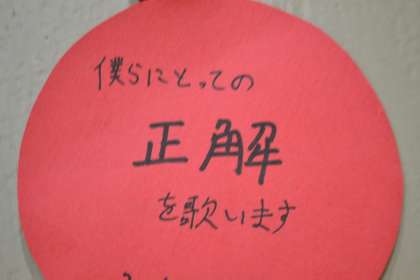 僕らにとっての
正解
を歌います